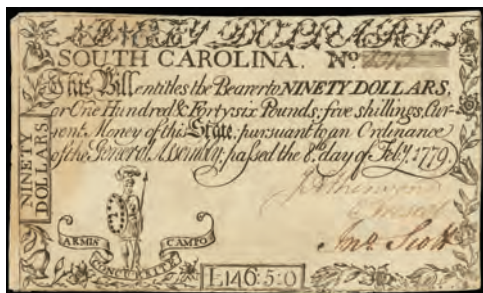 NINETY DOLLARS.
SOUTH CAROLINA. No.
This Bill entitles the Bearer to NINETY DOLLARS,
or One Hundred & Fortysix Pounds; five shillings, Cur-
rent Money of this State, pursuant to an Ordinance
of the General Assembly, passed the 8th day of Feby. 1779.
NINETY
DOLLARS
Jno. Scott
ARMIS CAMPO
CONCURRITE
£146:5:0